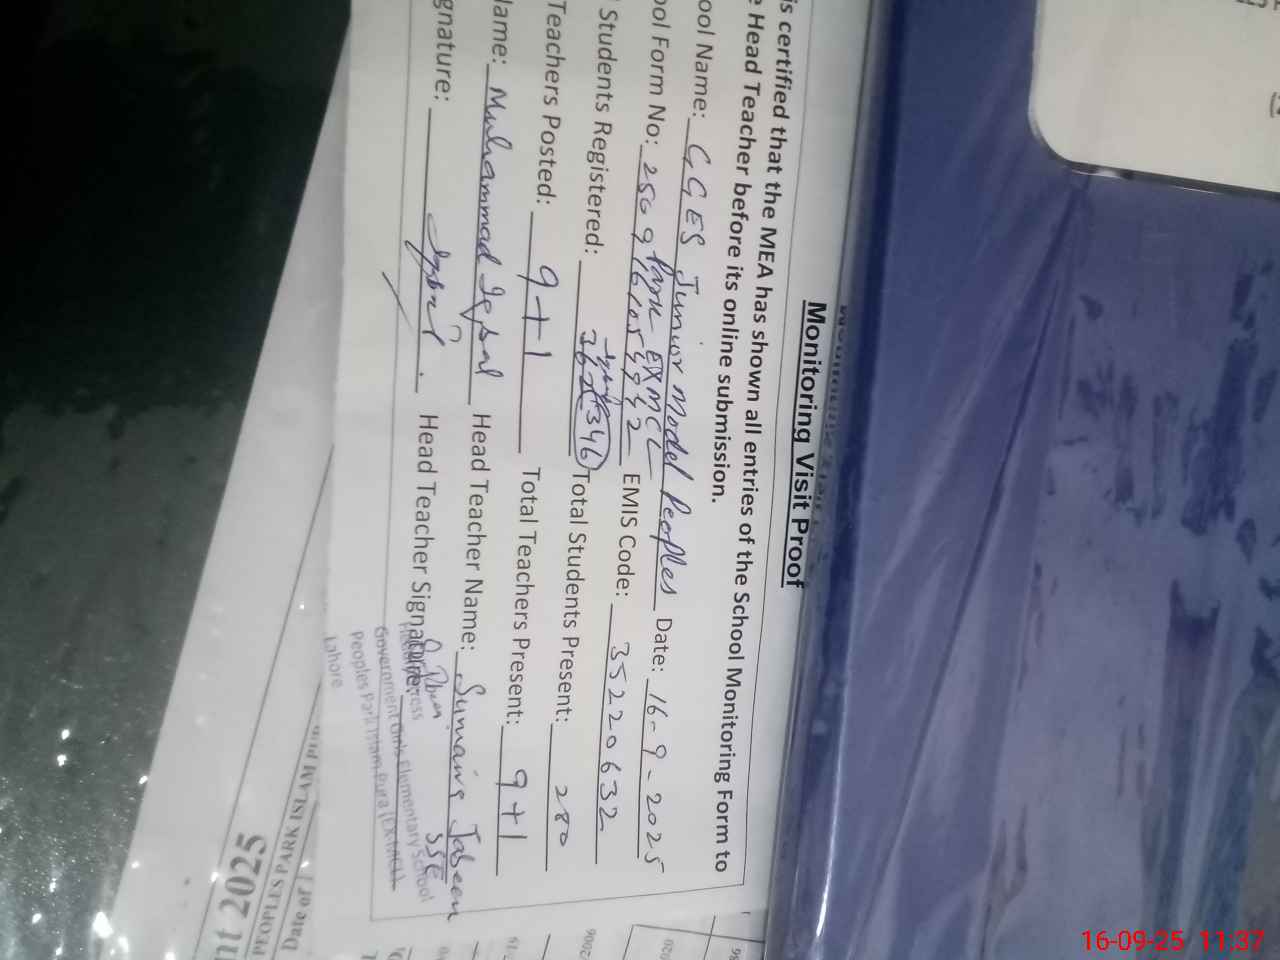 Monitoring Visit Proof
is certified that the MEA has shown all entries of the School Monitoring Form to
e Head Teacher before its online submission.
ool Name: GGES Junior Model Peoples Date: 16-9-2025
Park EXMCL
ool Form No: EMIS Code: 35220632
Students Registered: 346 Total Students Present: 280
Teachers Posted: 9+1 Total Teachers Present: 9+1
ame: Muhammad Iqbal Head Teacher Name: Sumaira Jabeen
SSE
gnature: Iqbal. Head Teacher Signature:
Government Girls Elementary School
Peoples Park
Lahore
PEOPLES PARK ISLAM PUR
2025
16-09-25 11:37